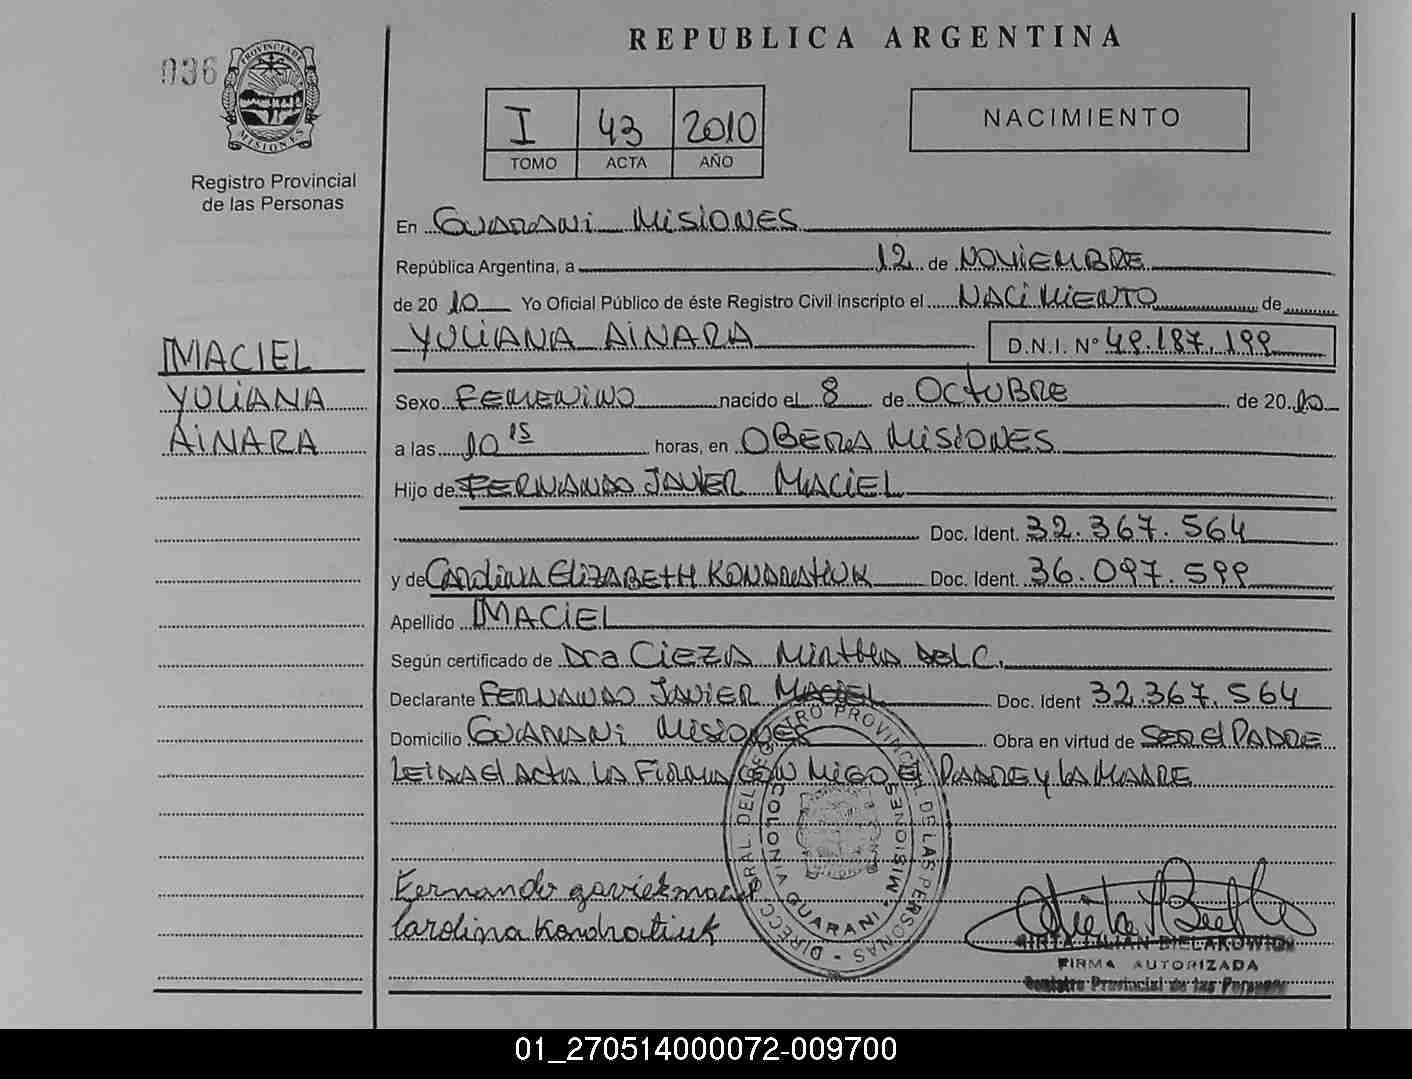 REPUBLICA ARGENTINA
036
PROVINCIA DE
MISIONES
Registro Provincial
de las Personas
I 43 2010
TOMO ACTA AÑO
NACIMIENTO
MACIEL
YULIANA
AINARA
En GUARANI MISIONES
República Argentina, a 12 de NOVIEMBRE
de 2010 Yo Oficial Público de éste Registro Civil inscripto el NACIMIENTO de
YULIANA AINARA D.N.I. N° 49.187.199
Sexo FEMENINO nacido el 8 de OCTUBRE de 2010
a las 10 15 horas, en OBERA MISIONES
Hijo de FERNANDO JAVIER MACIEL
Doc. Ident. 32.367.564
y de CAROLINA ELIZABETH KONDRATIUK Doc. Ident. 36.097.599
Apellido MACIEL
Según certificado de Dra CIEZA MIRTHA DEL C.
Declarante FERNANDO JAVIER MACIEL Doc. Ident 32.367.564
Domicilio GUARANI MISIONES Obra en virtud de SER El PADRE
LEIDA El ACTA LA FIRMA CON MIGO El PADRE y LA MADRE
DIRECC. GRAL. DEL REGISTRO PROVINCIAL DE LAS PERSONAS
COLONIA GUARANI - MISIONES
Fernando gaviel maciel
Carolina Kondratiuk
MIRTA LILIAN BIELAKOWICZ
FIRMA AUTORIZADA
Registro Provincial de las Personas
01_270514000072-009700